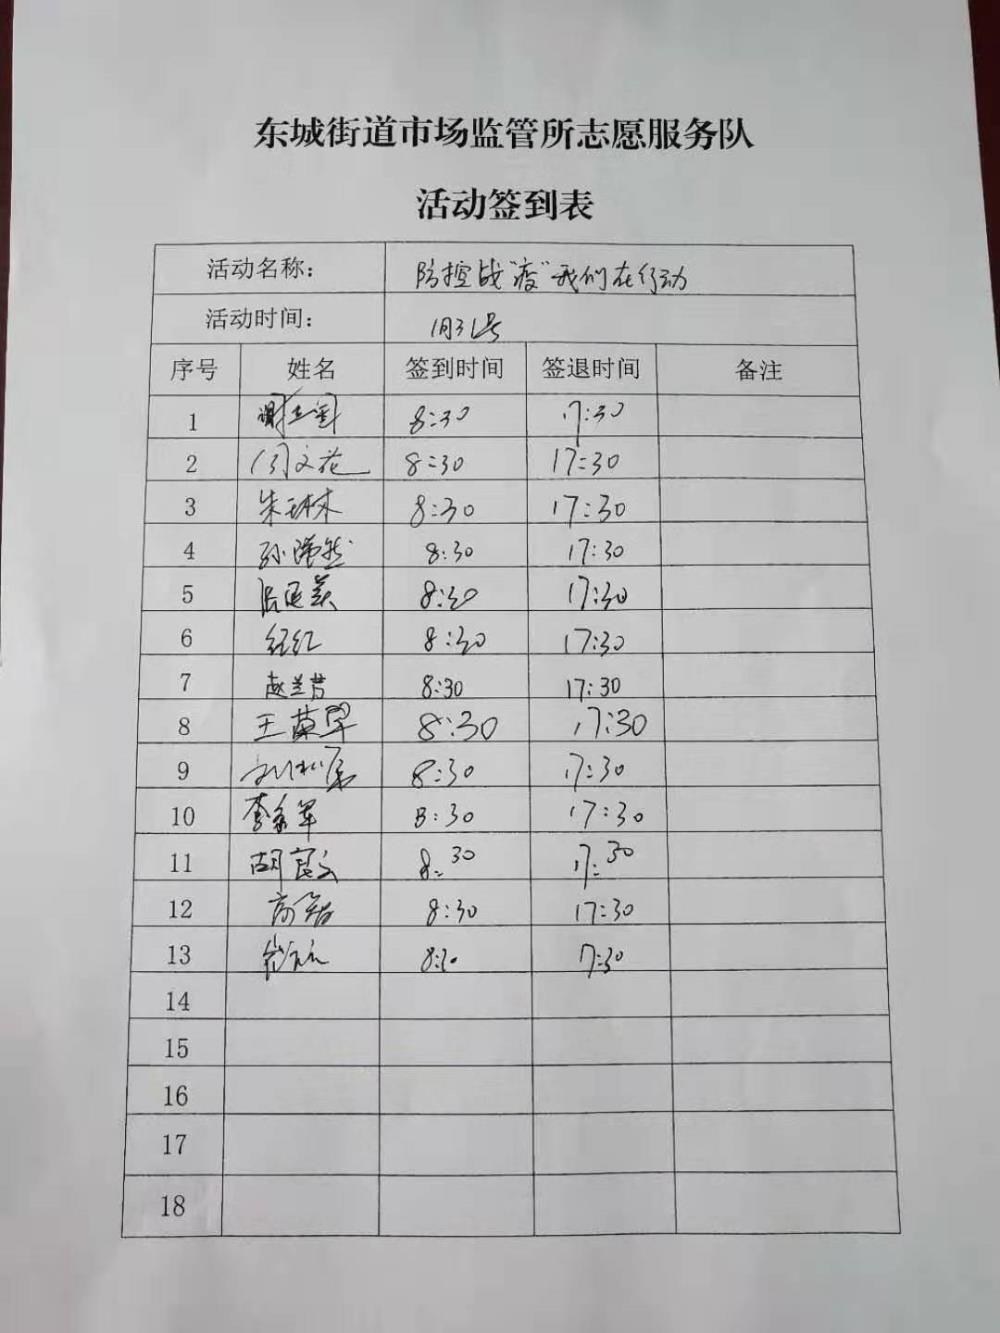 东城街道市场监管所志愿服务队
活动签到表
活动名称： 防控战"疫"我们在行动
活动时间： 1月31号
序号 姓名 签到时间 签退时间 备注
1 8:30 17:30
2 闫文花 8:30 17:30
3 朱琳林 8:30 17:30
4 孙 8:30 17:30
5 8:30 17:30
6 纪红 8:30 17:30
7 赵兰君 8:30 17:30
8 王 8:30 17:30
9 8:30 17:30
10 李 8:30 17:30
11 胡 8:30 17:30
12 高 8:30 17:30
13 8:30 17:30
14
15
16
17
18